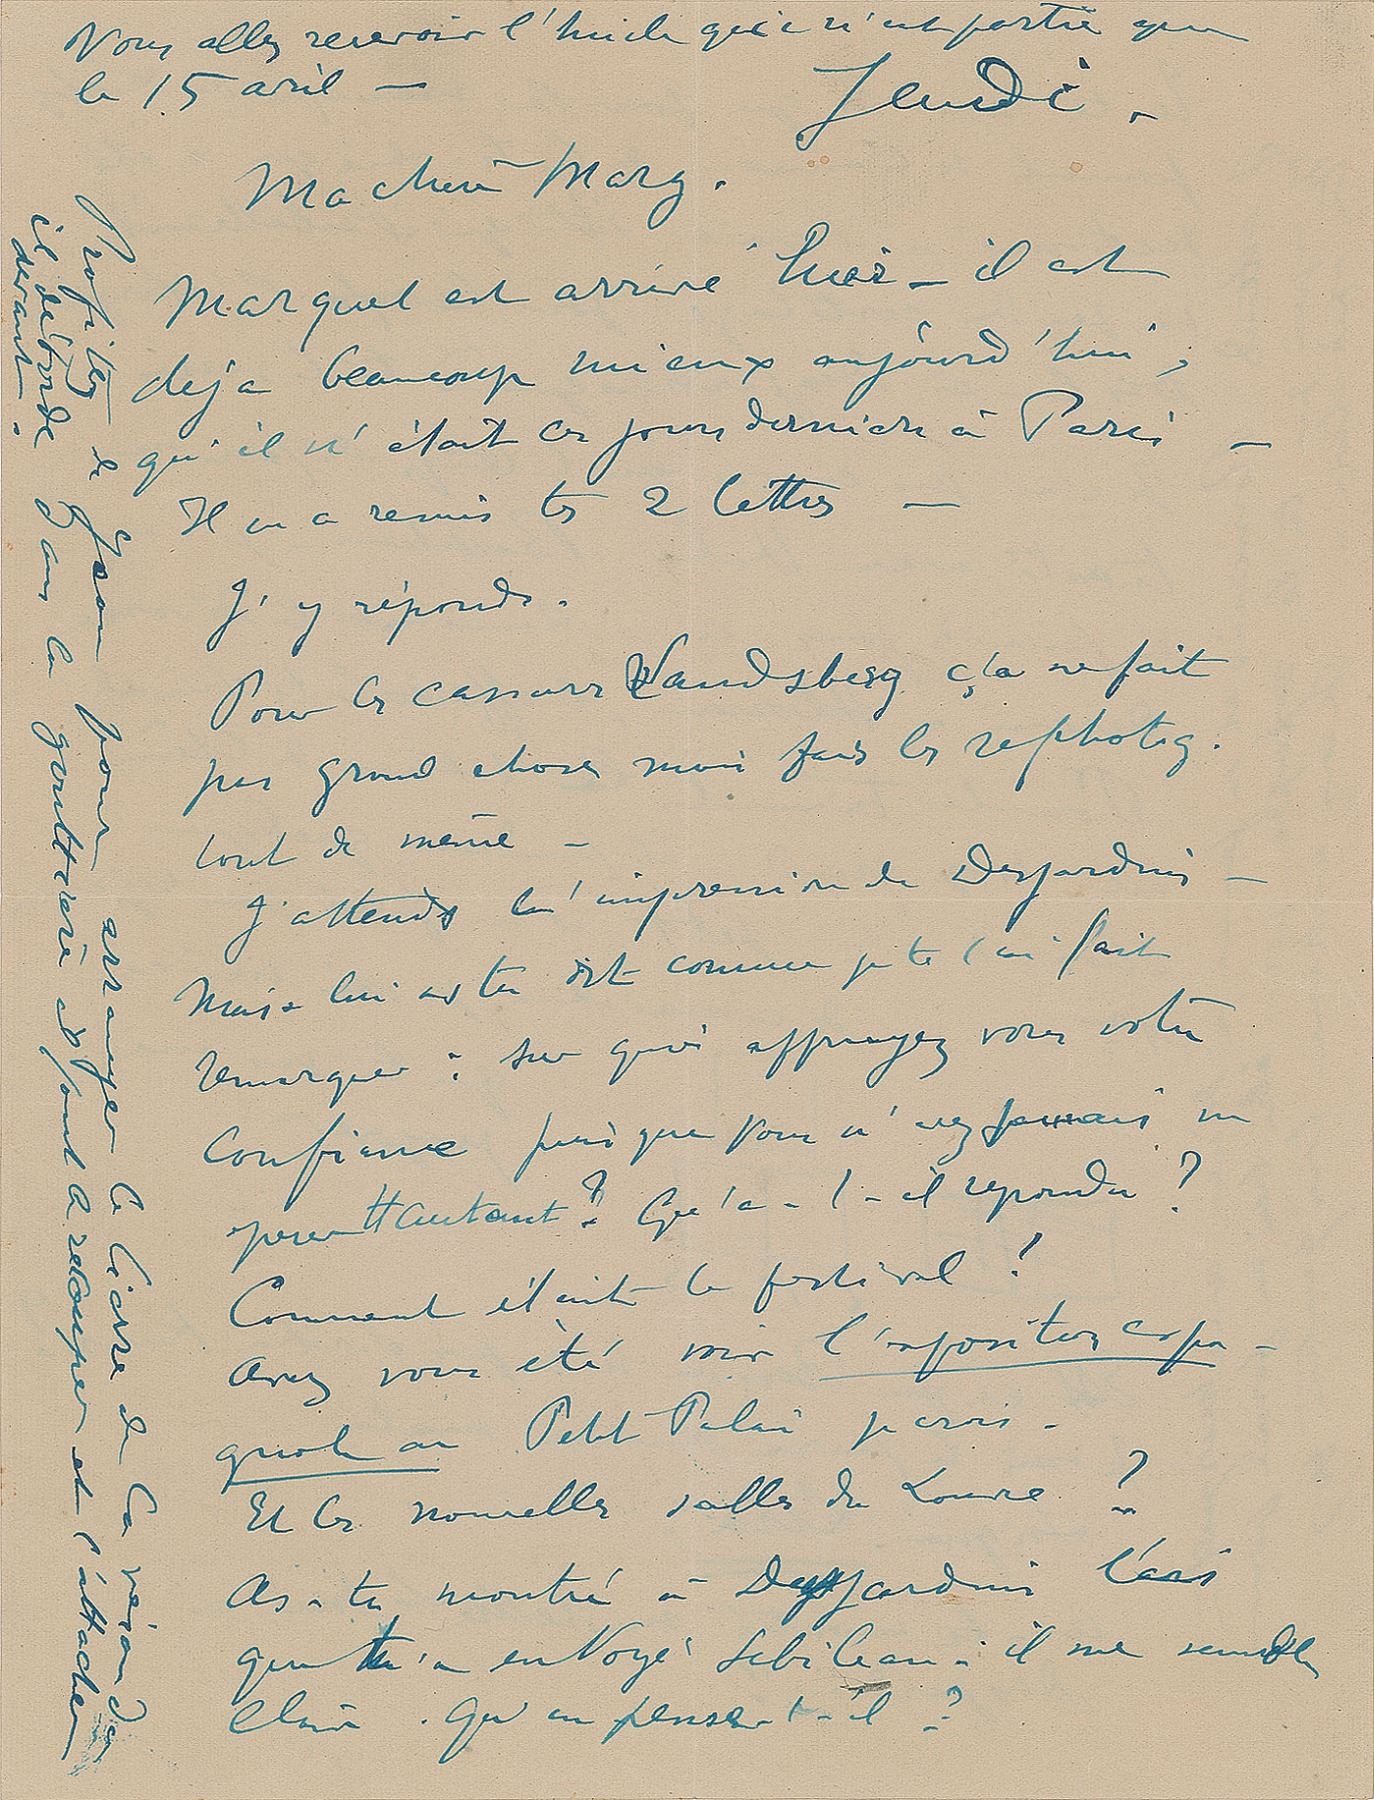 Vous allez recevoir l'huile qui n'est partie que
le 15 avril —
Jeudi.
Ma chère Marg.
Marquet est arrivé hier — il est
déjà beaucoup mieux aujourd'hui,
qu'il n'était ces jours derniers à Paris —
Il m'a remis tes 2 lettres —
J'y réponds.
Pour les Landsberg ça ne fait
pas grand chose mais fais les rephotog.
tout de même —
J'attends l'impression de Desjardins —
Mais lui as tu dit comme je te l'ai fait
remarquer : sur quoi appuyez vous votre
confiance puisque vous n'avez jamais vu
? Qu'a-t-il répondu ?
Comment était le festival ?
Avez vous été voir l'exposition espa-
gnole au Petit Palais
Et les nouvelles salles du Louvre ?
As-tu montré à Desjardins l'avis
que t'a envoyé Sebileau : il me semble
clair. Qu'en pense-t-il ?
Profitez de Jean pour arranger le lierre de la
il déborde dans la gouttière et faut le recouper et l'attacher
devant.